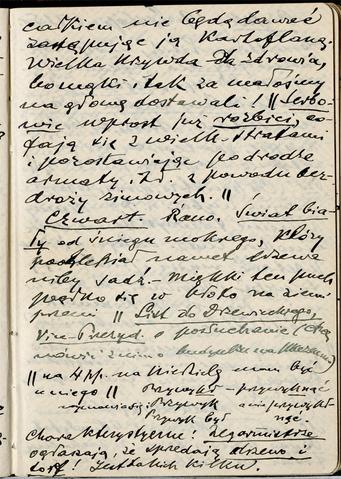 całkiem nie będą dawać
zastępując ją kartoflaną.
Wielka krzywda dla zdrowia,
bo mąki i tak za mało
na głowę dostawali! || Serbo-
wie wprost już rozbici, co-
fają się z wielk. stratami
i pozostawiając po drodze
armaty, itd. z powodu bez-
droży zimowych. ||
Czwart. Rano. Świat bia-
ły od śniegu mokrego, który
nawet drzewa
niby sadź - miękki ten puch
prędko się w błoto na ziemi
|| List do
Vice-Prezyd. o posłuchanie (chcę
mówić z nim o
|| na 4 pp. na Niedzielę mam być
u niego || Przywykł - przywyknąć
Przywyk
Przywyk był
Charakterystyczne! Zegarmistrze
ogłaszają, że sprzedają drzewo i
torf! Już takich kilku.